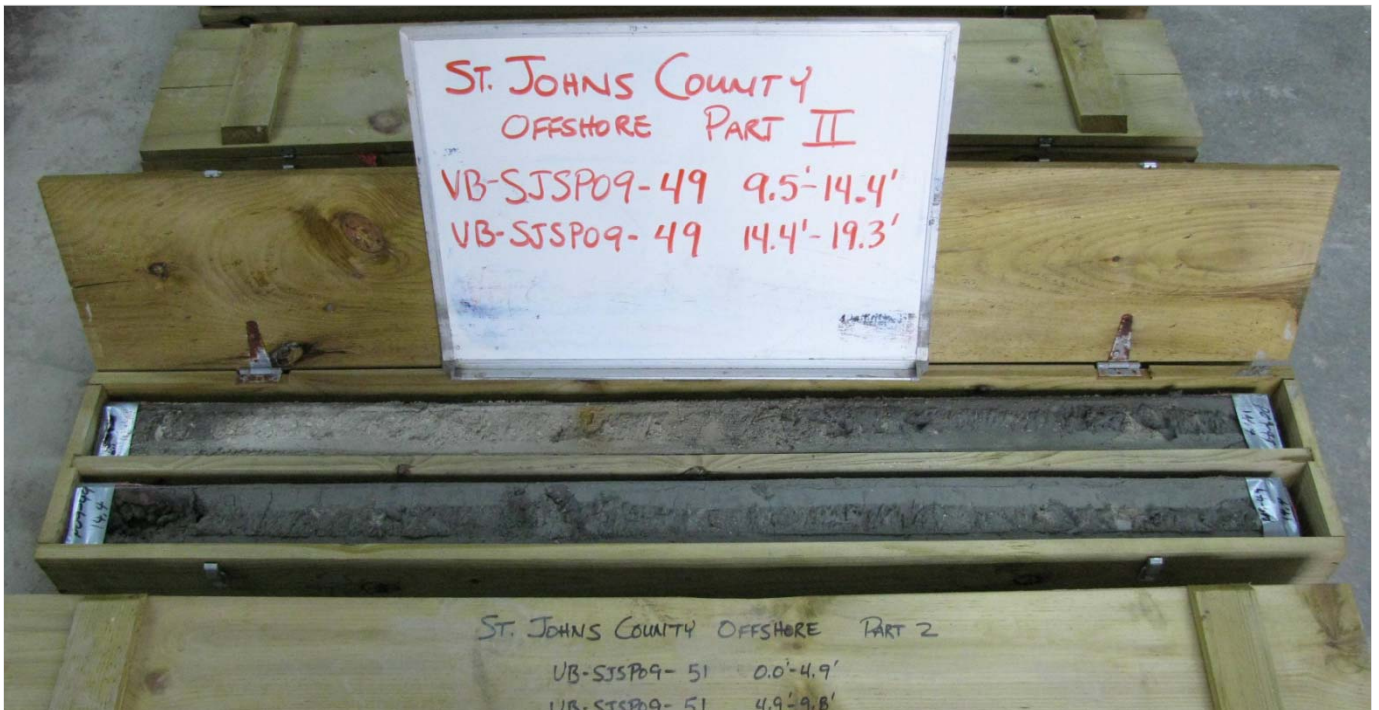 ST. JOHNS COUNTY
OFFSHORE PART II
VB-SJSP09-49 9.5'-14.4'
VB-SJSP09-49 14.4'-19.3'
14.4
ST. JOHNS COUNTY OFFSHORE PART 2
VB-SJSP09-51 0.0'-4.9'
VB-SJSP09-51 4.9'-9.8'